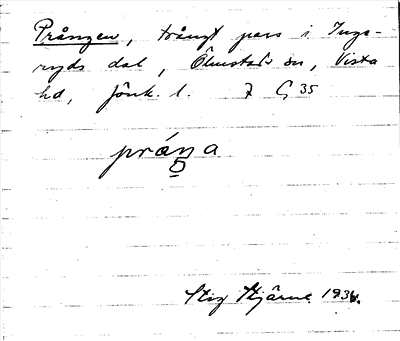 Prången, trångt pass i Inga-
ryds dal, Ölmstads sn, Vista
hd, Jönk. l. 7 G 35
práŋa
Stig Hjärne 1934.